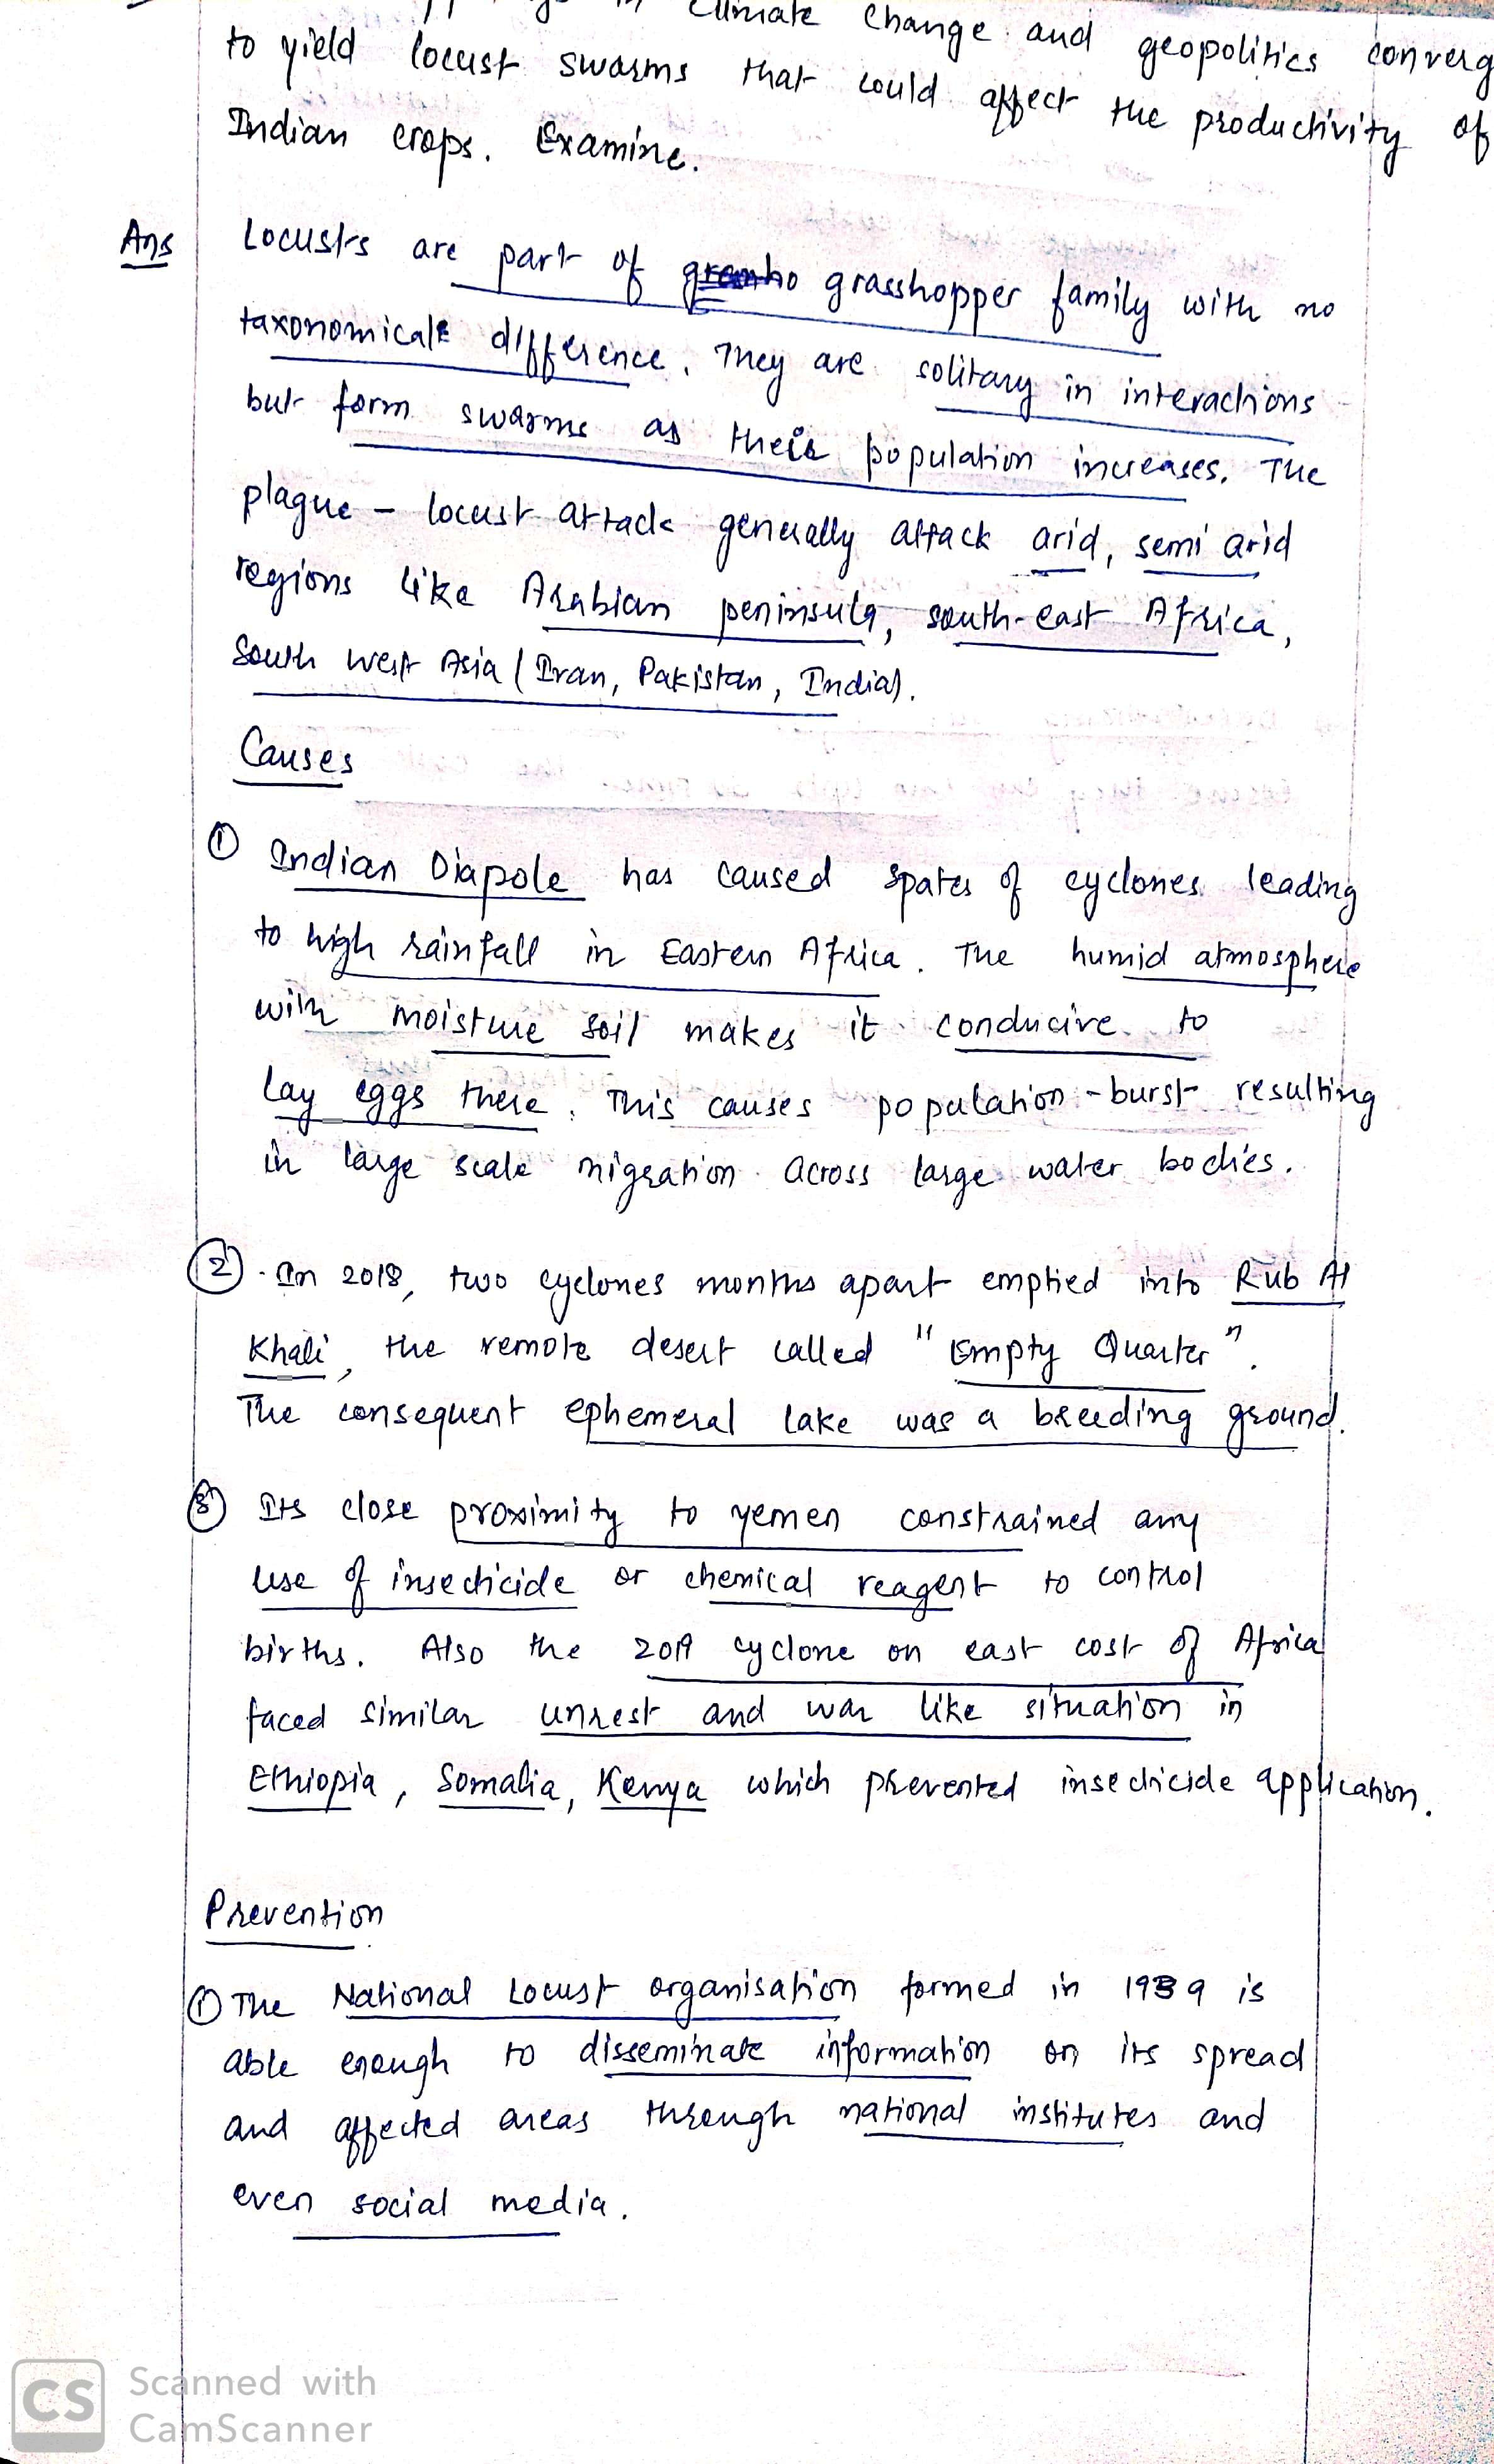 climate change and geopolitics converg
to yield locust swarms that could affect the productivity of
Indian crops. Examine.
Ans
Locusts are part of grasshopper family with no
taxonomical difference. They are solitary in interactions
but form swarms as their population increases. The
plague - locust attack generally attack arid, semi arid
regions like Arabian peninsula, south-east Africa,
South West Asia (Iran, Pakistan, India).
Causes
① Indian Diapole has caused spates of cyclones leading
to high rainfall in Eastern Africa. The humid atmosphere
with moisture soil makes it conducive to
lay eggs there. This causes population-burst resulting
in large scale migration across large water bodies.
② . In 2018, two cyclones months apart emptied into Rub Al
Khali, the remote desert called "Empty Quarter".
The consequent ephemeral lake was a breeding ground.
③ Its close proximity to yemen constrained any
use of insecticide or chemical reagent to control
births. Also the 2019 cyclone on east cost of Africa
faced similar unrest and war like situation in
Ethiopia, Somalia, Kenya which prevented insecticide application.
Prevention
① The National Locust organisation formed in 1939 is
able enough to disseminate information on its spread
and affected areas through national institutes and
even social media.
CS Scanned with
CamScanner